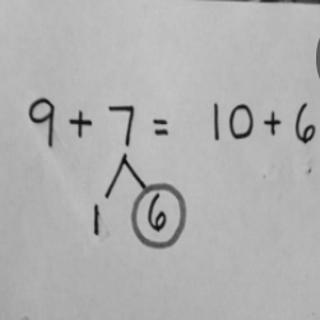 9 + 7 = 10 + 6
1 6